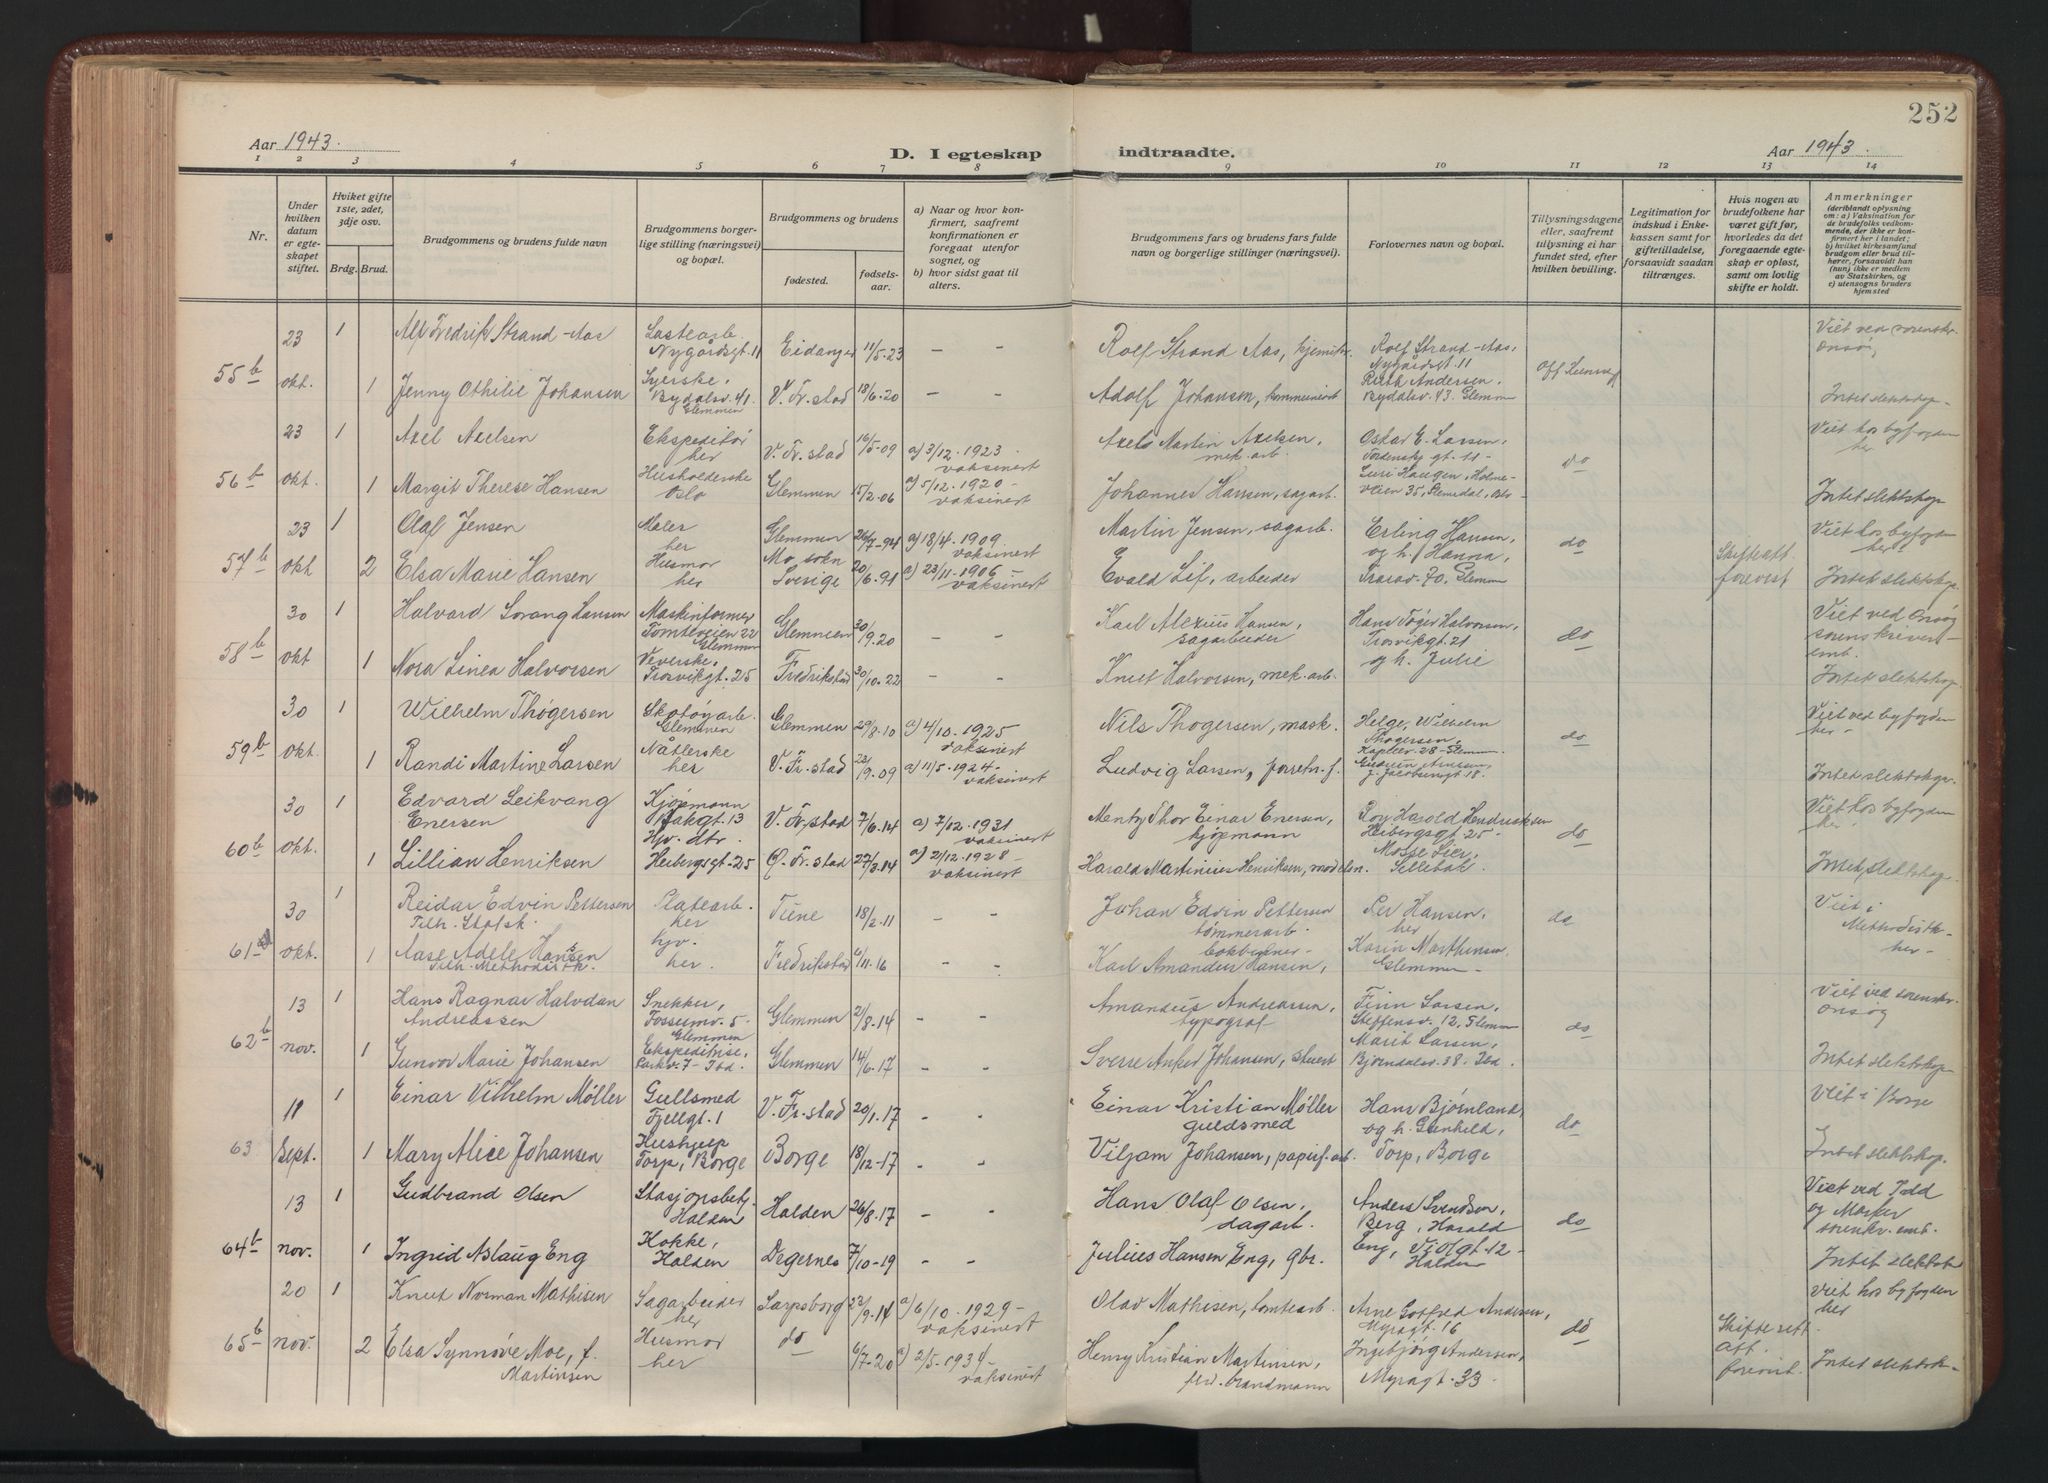 252
Aar 1943.
D. I egteskap
indtraadte.
Aar 1943.
1 2 3 4 5 6 7 8 9 10 11 12 13 14
Nr.
Under hvilken datum er egteskapet stiftet.
Hviket gifte 1ste, 2det, 3dje osv.
Brdg. Brud.
Brudgommens og brudens fulde navn
Brudgommens borgerlige stilling (næringsvei) og bopæl.
Brudgommens og brudens
fødested.
fødselsaar.
a) Naar og hvor konfirmert, saafremt konfirmationen er foregaat utenfor sognet, og
b) hvor sidst gaat til alters.
Brudgommens fars og brudens fars fulde navn og borgerlige stillinger (næringsvei).
Forlovernes navn og bopæl.
Tillysningsdagene eller, saafremt tillysning ei har fundet sted, efter hvilken bevilling.
Legitimation for indskud i Enkekassen samt for giftetilladelse, forsaavidt saadan tiltrænges.
Hvis nogen av brudefolkene har været gift før, hvorledes da det foregaaende egteskap er opløst, samt om lovlig skifte er holdt.
Anmerkninger
(deriblandt oplysning om: a) Vaksination for de brudefolks vedkommende, der ikke er konfirmert her i landet; b) hvilket kirkesamfund brudgom eller brud tilhører, forsaavidt han (hun) ikke er medlem av Statskirken, og c) utensogns bruders hjemsted
55b 23 okt. 1 Alf Fredrik Strand-Aas Lastearb. Nygårdsgt. 11 Eidanger 11/5-23 - - Rolf Strand Aas, kjemiker Rolf Strand-Aas, Nygårdsgt 11 Viet ved sorenskr. Onsøy
1 Jenny Othilie Johansen Syerske, Bydalsv. 41, Glemmen V. Fr.stad 18/6-20 - - Adolf Johansen, Ruth Andersen, Bydalsv. 43, Glemm Intet slektskap
56b 23 okt. 1 Axel Axelsen Ekspeditør her V. Fr.stad 16/5-09 a) 3/12. 1923 vaksinert Axels Martin Axelsen, mek. arb. Oskar E. Larsen, Tordenskj.gt. 11 - do Viet hos byfogden her
1 Margit Therese Hansen Husholderske Oslo Glemmen 15/2-06 a) 5/12. 1920 - vaksinert Johannes Hansen, sagarb. Haugen, Holmeveien 35, Slemdal, Oslo Intet slektskap
57b 23 okt 1 Olaf Jensen Maler her Glemmen 26/7-94 a) 18/4. 1909. vaksinert Martin Jensen, sagarb. Erling Hansen, og h. Hanna, do Viet hos byfogden her
2 Elsa Marie Hansen Husmor her Mo sokn Sverige 20/6-91 a) 23/11-1906 - vaksinert Evald Lif, arbeider Trarav. 70. Glemm Skifteatt. forevist Intet slektskap
58b 30 okt 1 Halvard Sorang Hansen Maskinformer Tomteveien 22 Glemmen Glemmen 30/9.20 - - Karl Alexius Hansen, sagarbeider Hans Tøger Halvorsen, Trosvikgt. 21 do Viet ved Onsøy sorenskriveremb.
1 Nora Linea Halvorsen Veverske, Trosvikgt. 25 Fredrikstad 30/10-22 - - Knut Halvorsen, mek. arb. og h. Julie Intet slektskap
59b 30 okt. 1 Wilhelm Thøgersen Skotøyarb. Glemmen Glemmen 29/8-10 a) 4/10. 1925 vaksinert Nils Thøgersen, mask. Helge Wilhelm Thøgersen, Kapellv. 28 - Glemm. do Viet ved byfogden her
1 Randi Martine Larsen Nåtlerske her V. Fr.stad 23/9-09 a) 11/5-1924 - vaksinert Ludvig Larsen, forretn.f. Gudrun J. Jacobsensgt 18. Intet slektskap
60b 30 okt. 1 Edvard Leikvang Enersen Kjøpmann gt. 13 V. Fr.stad 7/6-14 a) 7/12. 1931 vaksinert Mentz Thor Einar Enersen, kjøpmann Roy Harald Hendriksen Heibergsgt 25 - do Viet hos byfogden her
1 Lillian Henriksen Hjv. dtr. Heibergsgt. 25 Ø. Fr.stad 27/3-14 a) 2/12. 1928 - vaksinert Harald Martinius Henriksen, Mosse Lier, Sellebak. Intet slektskap
61 30 okt. 1 Reidar Edvin Pettersen Tilh. Statsk. Platearb. her Tune 18/2-11 - - Johan Edvin Pettersen tømmerarb. Per Hansen, her do Viet i Methodistk. her -
1 Aase Adele Hansen Tilh. Methodistk. hjv. her. Fredrikstad 6/11-16 - - bokbinder Karl Amandus Hansen, Karin Marthinsen, Glemmen -
62b 13 nov. 1 Hans Ragnar Halvdan Andreassen Snekker, Fossumv. 5 - Glemmen Glemmen 2/8-14 - - Amandus Andreassen, typograf Finn Larsen, Steffensv. 12, Glemm do Viet ved sorenskr. Onsøy
1 Gunvor Marie Johansen Ekspeditrise, Parkv. 7 - Ibd. Glemmen 14/6-17 - - Sverre Anker Johansen, stuert Marit Larsen, Bjørndalsv. 38. Ibd. Intet slektskap
63 18 Sept. 1 Einar Vilhelm Møller Gullsmed Fjellgt. 1 V. Fr.stad 20/1-17 - - Einar Kristian Møller guldsmed Hans Bjørnland, og h. Gunhild, do Viet i Borge
1 Mary Alice Johansen Hushjelp Torp, Borge Borge 18/12-17 - - Viljam Johansen, papirf.arb. Torp, Borge Intet slektskap.
64b 13 nov. 1 Gudbrand Olsen Stasjonsbetj. Halden Halden 26/8-17 - - Hans Olaf Olsen, dagarb. Anders Svendsen, Berg, Harald do Viet ved Idd og Marker sorenskr. emb.
1 Ingrid Aslaug Eng Kokke, Halden Degernes 7/10-19 - - Julius Hansen Eng, gbr. Eng, Violgt. 12 - Halden Intet slektsk
65b 20 nov. 1 Knut Norman Mathisen Sagarbeider her Sarpsborg 22/9-14 a) 6/10. 1929 - vaksinert Olav Mathisen, tomtearb. Arne Gotfred Andersen, Myragt. 16 do Viet hos byfogden her
2 Elsa Synnøve Moe, f. Martinsen Husmor her do 6/7-20 a) 2/5-1934 - vaksinert Henry Kristian Martinsen, brandmann Ingebjørg Andersen, Myragt. 33. Skifterett att. forevist. Intet slektsk.